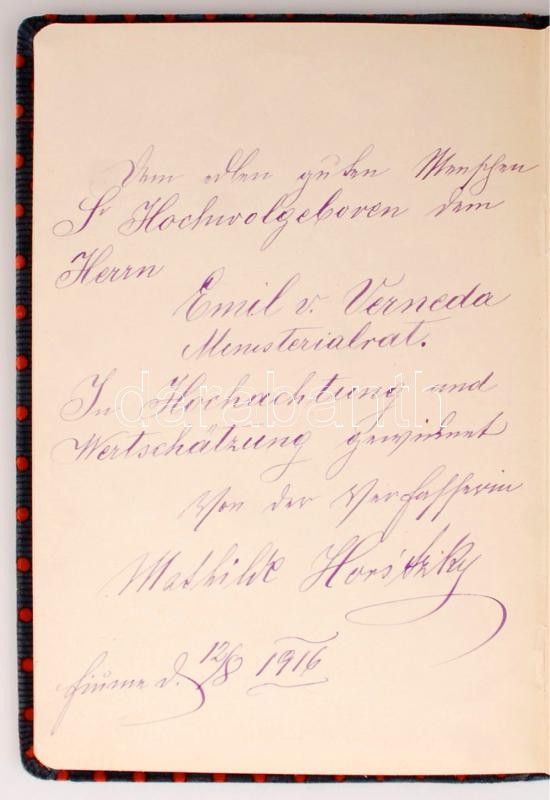 Dem edlen guten Menschen
Sr Hochwolgeboren dem
Herrn
Emil v. Verneda
Ministerialrat.
In Hochachtung und
Wertschätzung gewidmet
Von der Verfasserin
Mathilde
Fiume d. 12/8 1916
darabanth